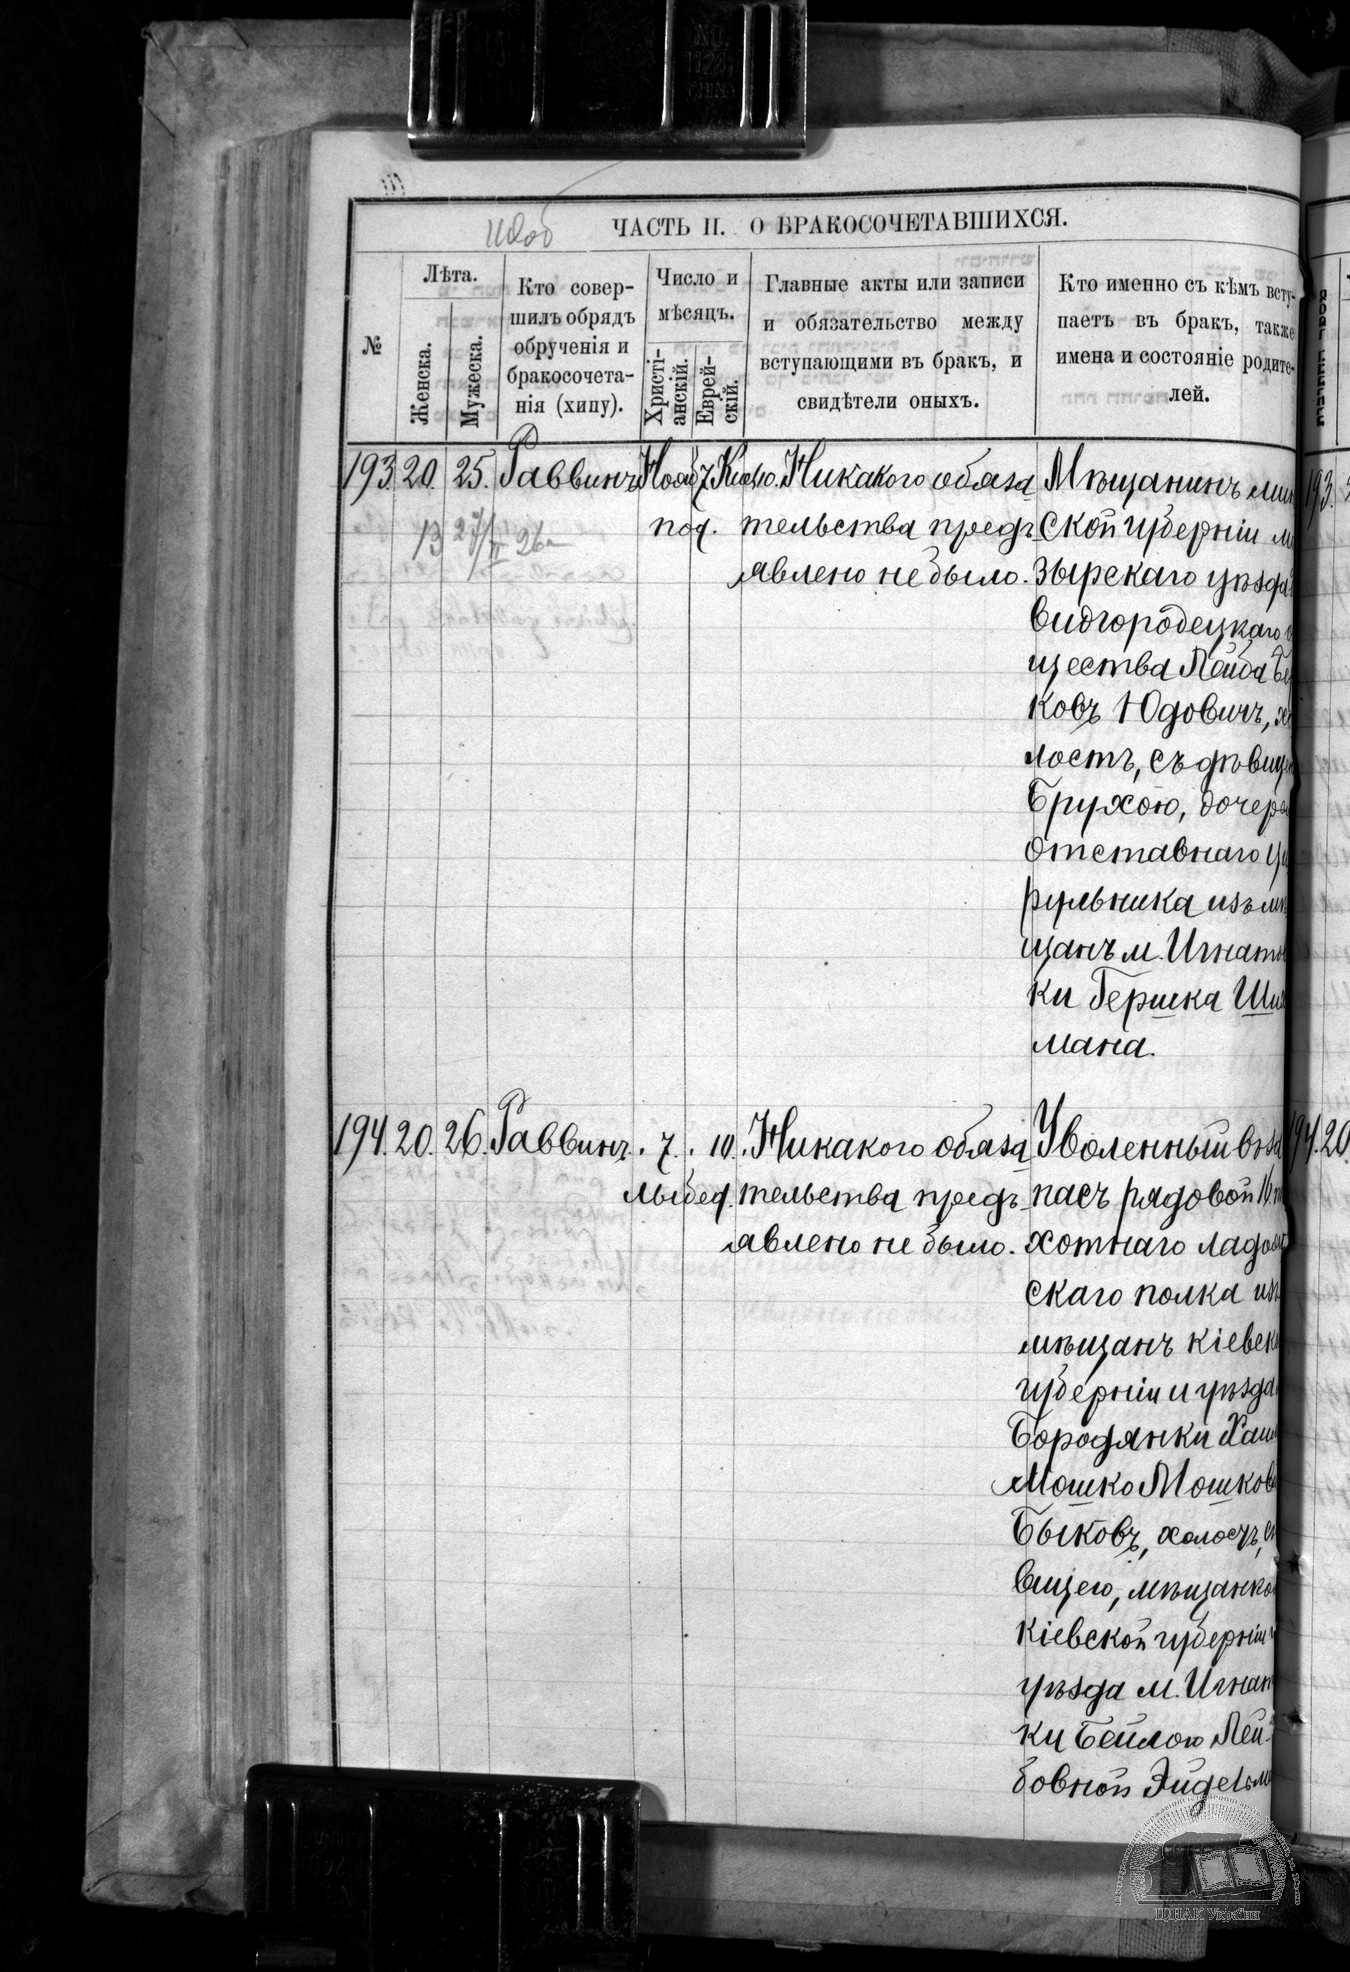 ЧАСТЬ II. О БРАКОСОЧЕТАВШИХСЯ.
№
Лѣта.
Женска.
Мужеска.
Кто совер-
шилъ обрядъ
обрученія и
бракосочета-
нія (хипу).
Число и
мѣсяцъ.
Христі-
анскій.
Еврей-
скій.
Главные акты или записи
и обязательство между
вступающими въ бракъ, и
свидѣтели оныхъ.
Кто именно съ кѣмъ всту-
паетъ въ бракъ, также
имена и состояніе родите-
лей.
193. 20. 25. Раввинъ 7 10. Никакого обяза
под. тельства предъ
явлено не было.
Мѣщанинъ мин
ской губерніи м
зырскаго уѣзда
Видгородецкаго о
щества Лейба Бе
ковъ Юдовичъ, хо
лостъ, съ дѣвице
Брухою, дочерью
отставнаго цы
рульника изъ мѣ
щанъ м. Игнатов
ки Гершка Ши
мана.
194. 20. 26. Раввинъ. 7. 10. Никакого обяза
тельства предъ
явлено не было.
Уволенный въ за
пасъ рядовой 16. пѣ
хотнаго ладож
скаго полка изъ
мѣщанъ кіевск
губерніи и уѣзда
Бородянки Хаим
Мошко Мошков
Быковъ, холостъ,
вицею, мѣщанкой
кіевской губерніи
уѣзда м. Игнат
ки Бейлою Лей-
бовной Эйдельм
193.
194. 20.
ЦДІАК України